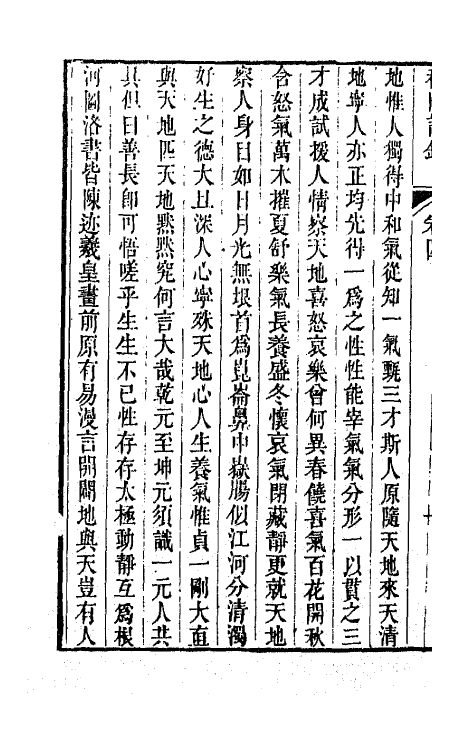 卷四
地惟人獨得中和氣從知一氣甄三才斯人原隨天地來天清
地寧人亦正均先得一爲之性性能宰氣氣分形一以貫之三
才成試援人情察天地喜怒哀樂曾何異春饒喜氣百花開秋
含怒氣萬木摧夏舒樂氣長養盛冬懷哀氣閉藏靜更就天地
察人身目如日月光無垠首爲崑崙鼻中嶽腸似江河分清濁
好生之德大且深人心寧殊天地心人生養氣惟貞一剛大直
與天地匹天地默默究何言大哉乾元至坤元須識一元人共
具但曰善長卽可悟嗟乎生生不已性存存太極動靜互爲根
河圖洛書皆陳迹羲皇畫前原有易漫言開闢地與天豈有人